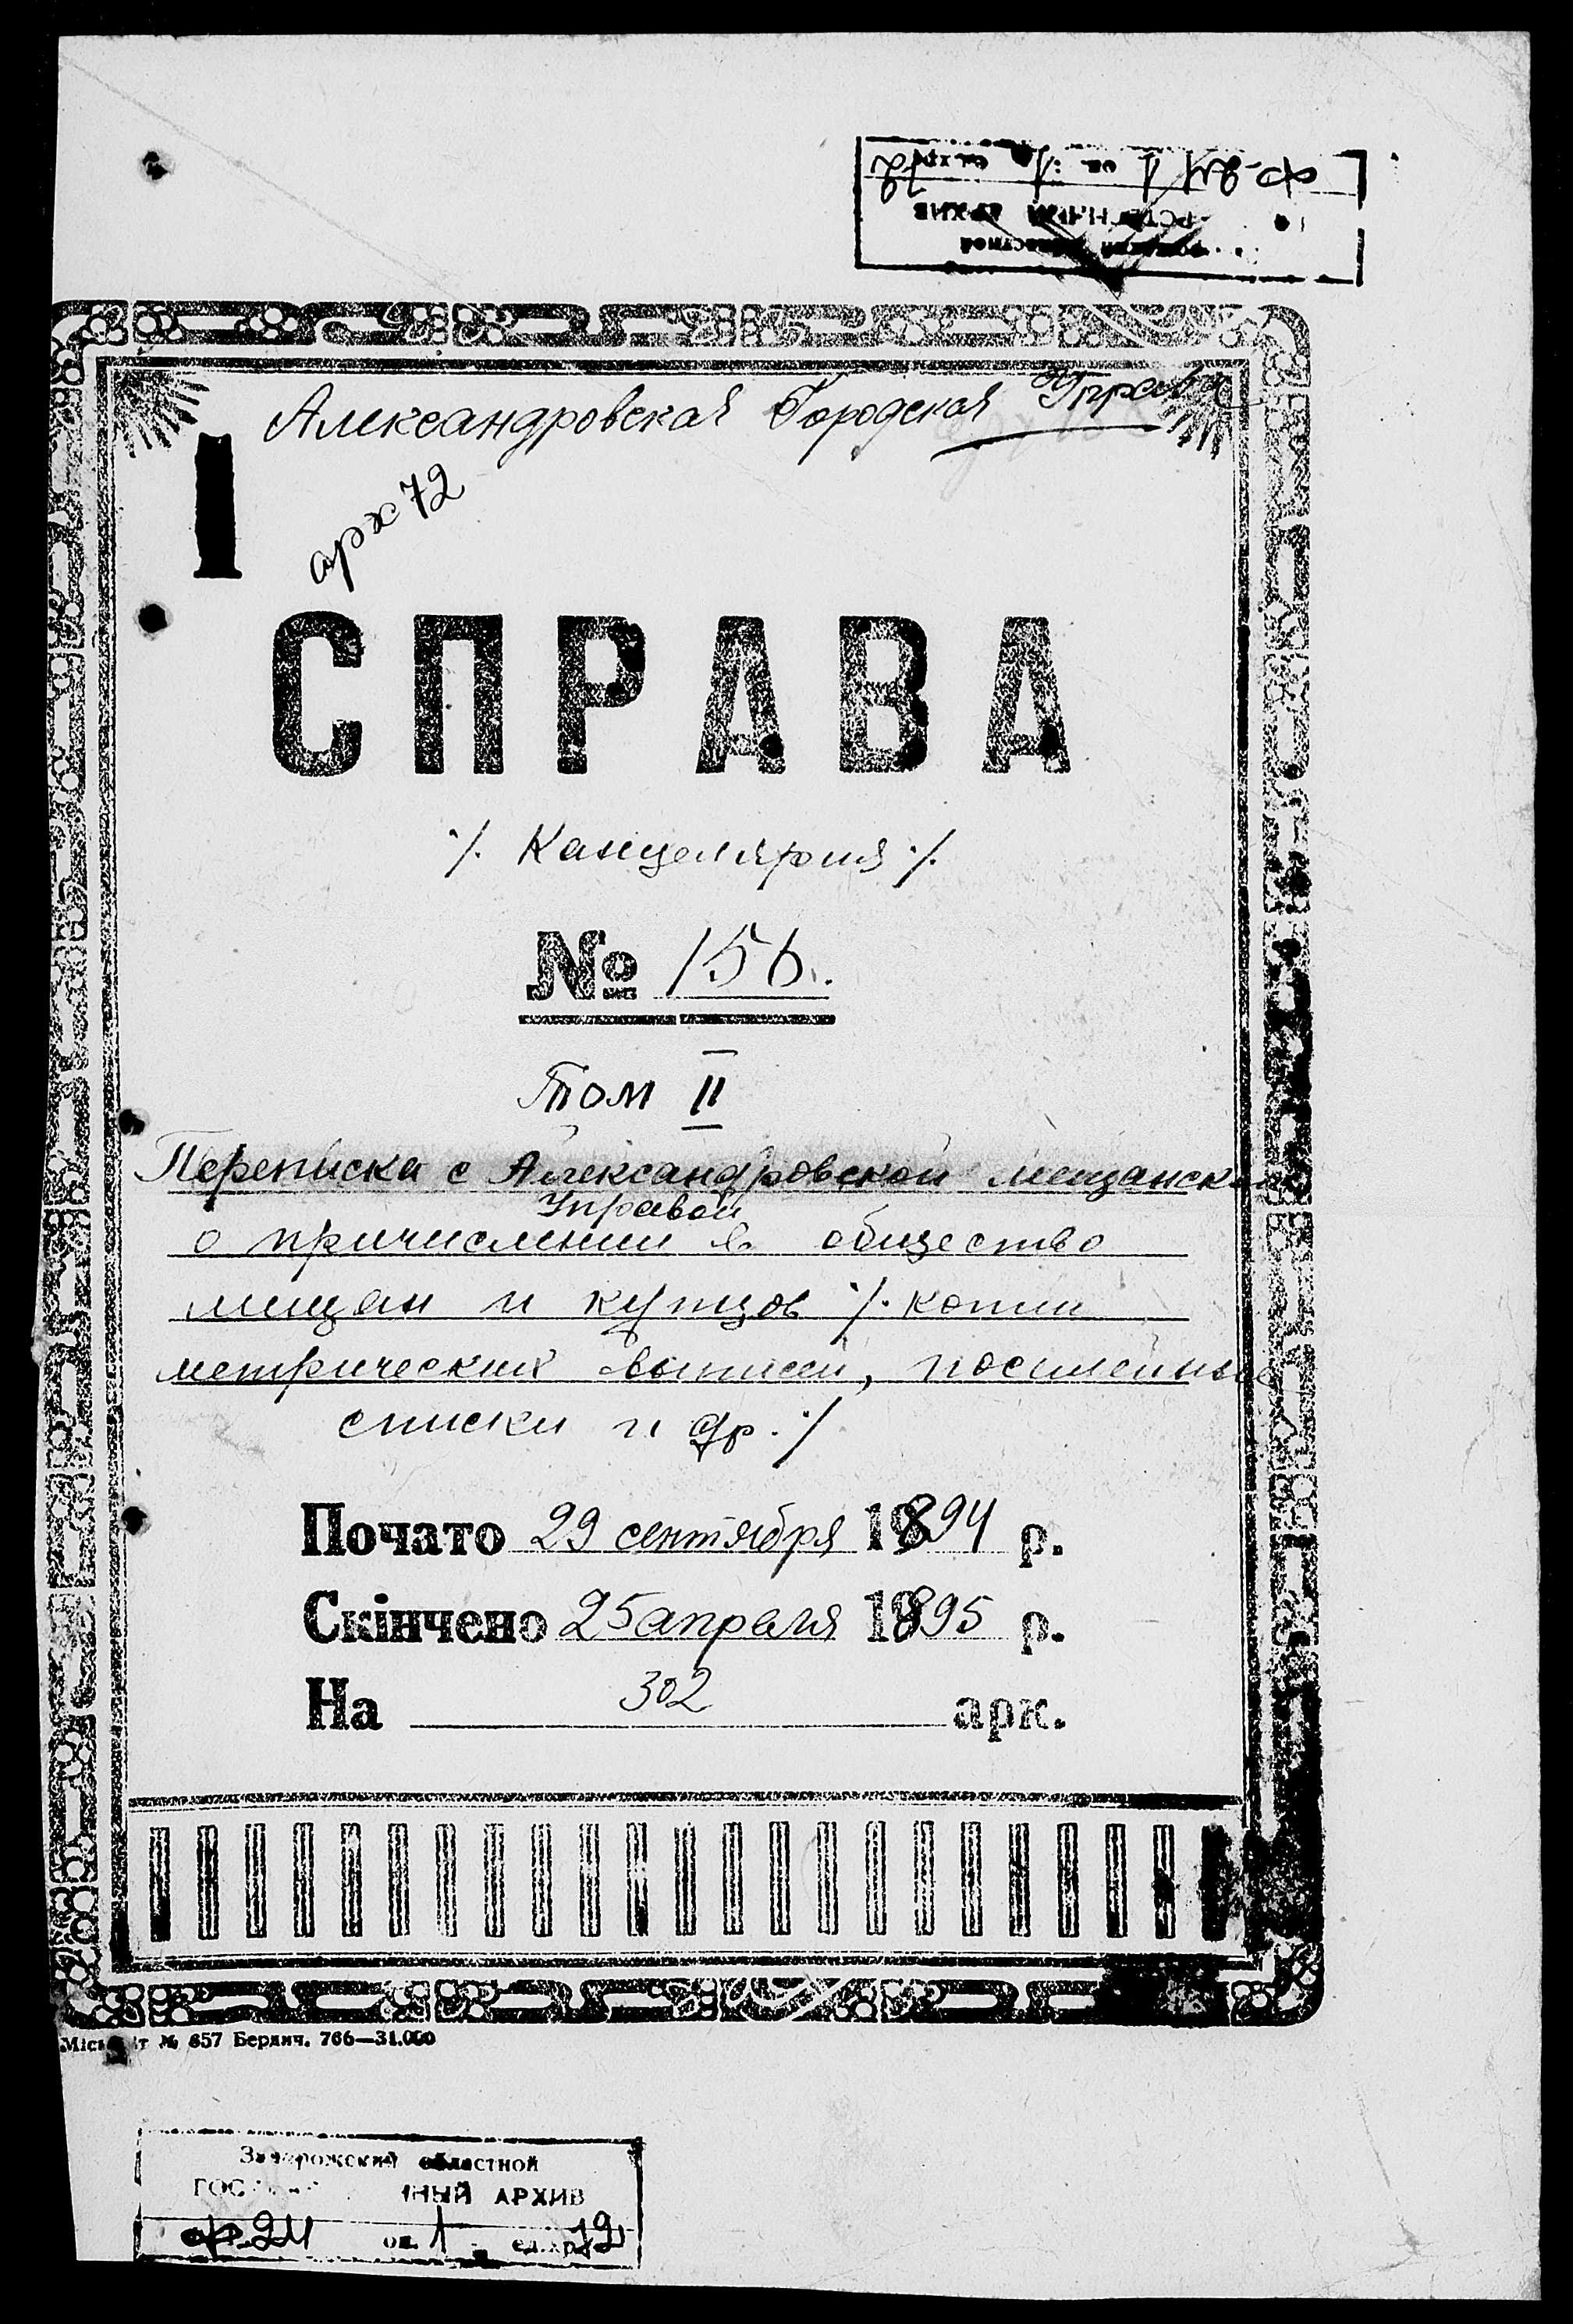 Александровская Городская Управа
арх 72
СПРАВА
./. Канцелярия ./.
№ 156.
Том II
Переписка с Александровской мещанской
Управой
о причислении в общество
мещан и купцов ./. копии
метрических выписей, посемейные
списки и др. ./
Почато 29 сентября 1894 р.
Скінчено 25 апреля 1895 р.
На 302 арк.
№ 657 Бердич. 766—31.000
Запорожский областной
АРХИВ
ф. 24 оп. 1 ед. хр. 72